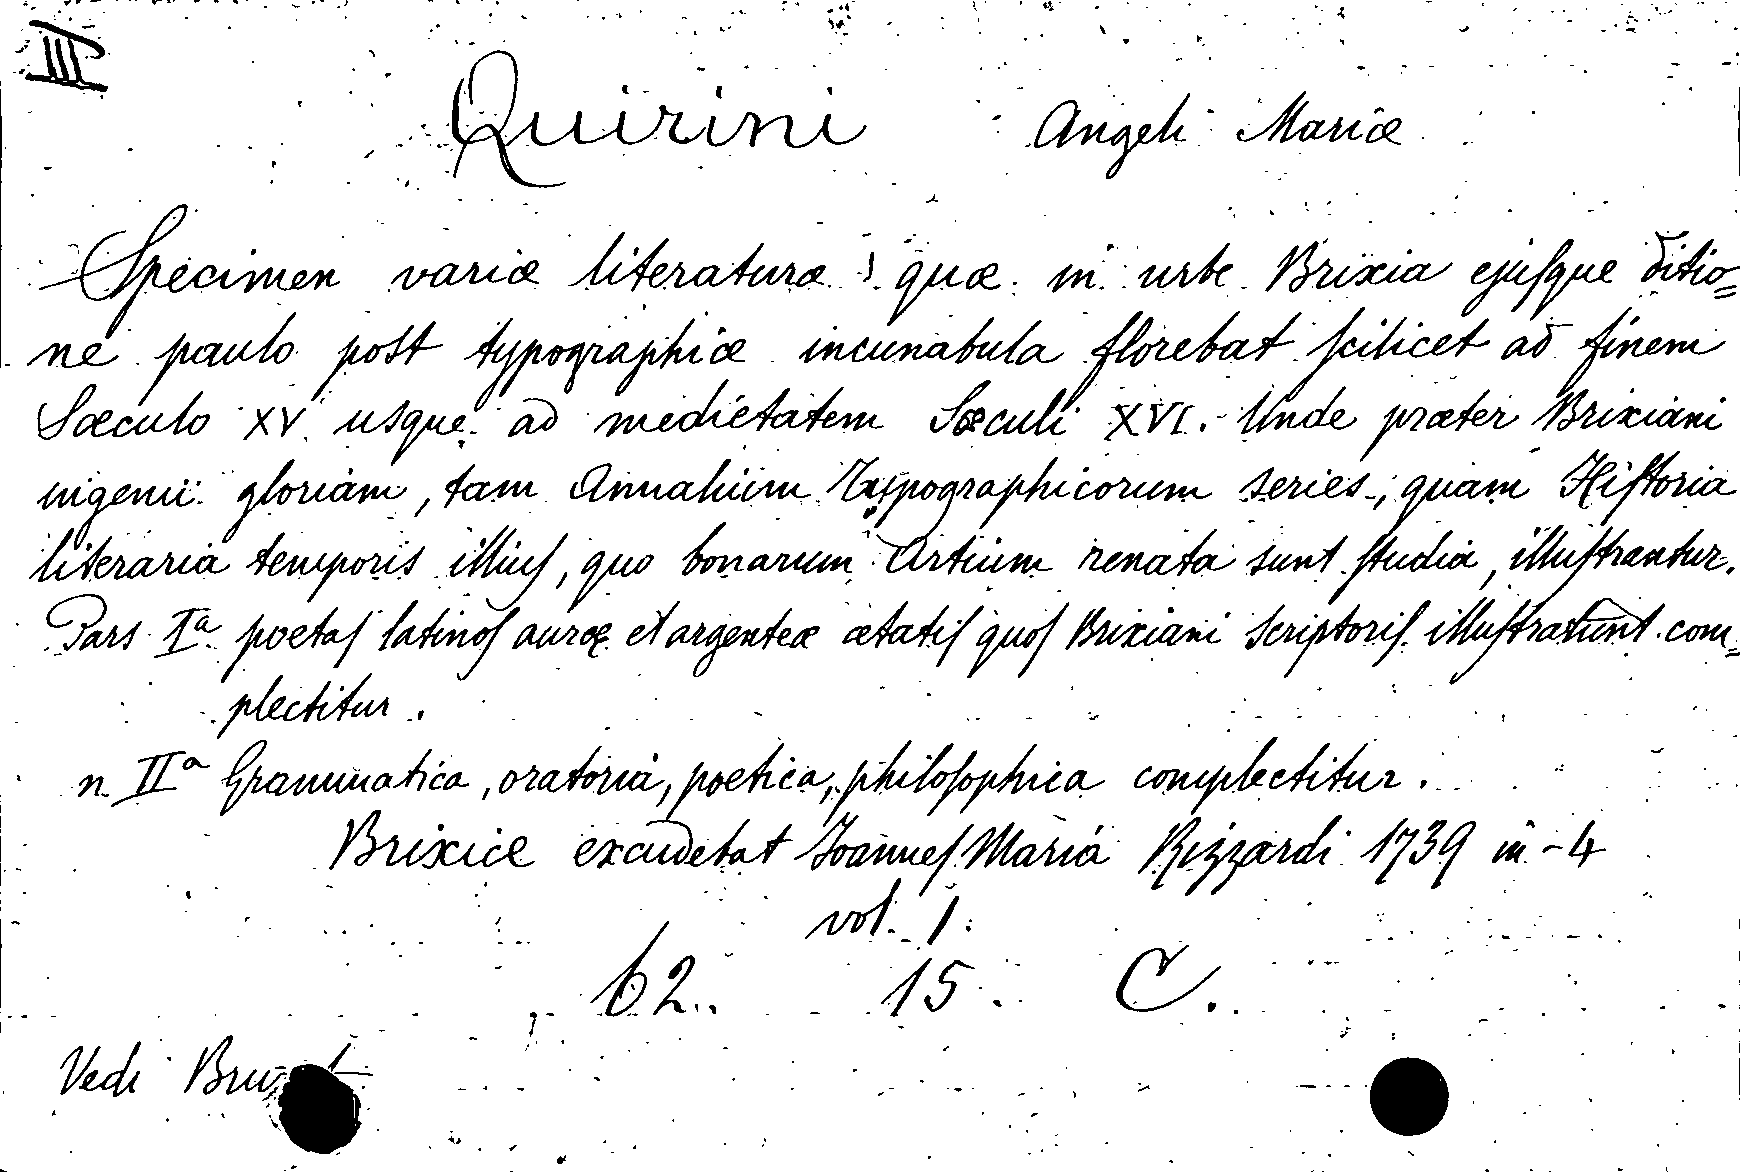 III
Quirini Angeli Mariæ
Specimen variæ literaturæ quæ in urbe Brixia ejusque ditio=
ne paulo post typographiæ incunabula florebat scilicet ad finem
Sæculo XV usque ad medietatem Sæculi XVI. Unde præter Brixiani
ingenii gloriam, tam Annalium Typographicorum series, quam Historia
literaria temporis illius, quo bonarum Artium renata sunt studia, illustrantur.
Pars Iª poetas latinos auræ et argenteæ ætatis quos Brixiani scriptoris illustrarunt com=
plectitur.
n. IIª Grammatica, oratoria, poetica, philosophica complectitur.
Brixiæ excudebat Joannes Maria Rizzardi 1739 in-4
vol. 1.
62. 15. C.
Vedi